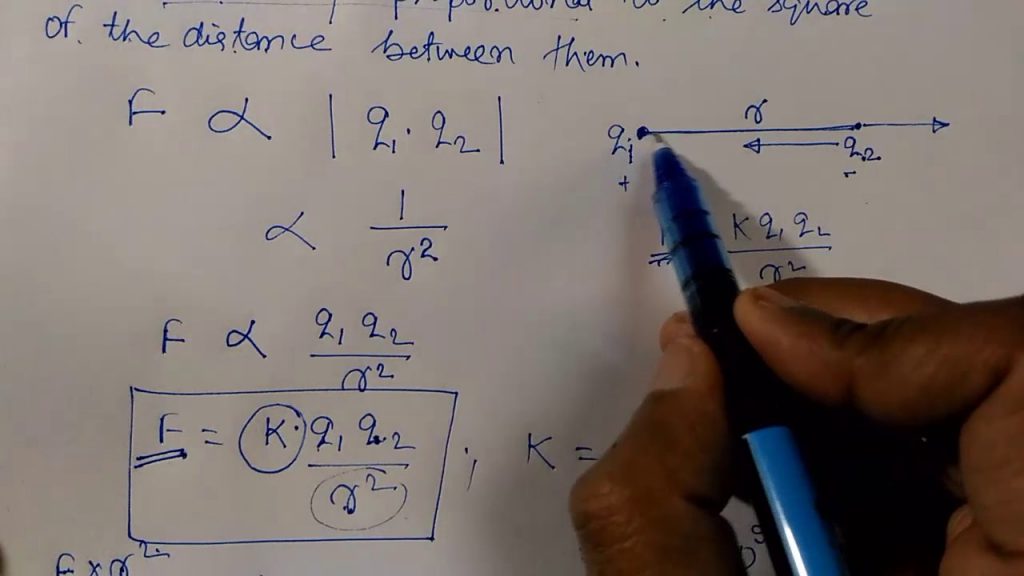 proportional to the square
of the distance between them.
F ∝ | q₁ · q₂ |
∝ 1/r²
F ∝ q₁ q₂ / r²
F = K · q₁ q₂ / r² ; K =
F × r²
r
q₁ q₂
+ -
K q₁ q₂ / r²